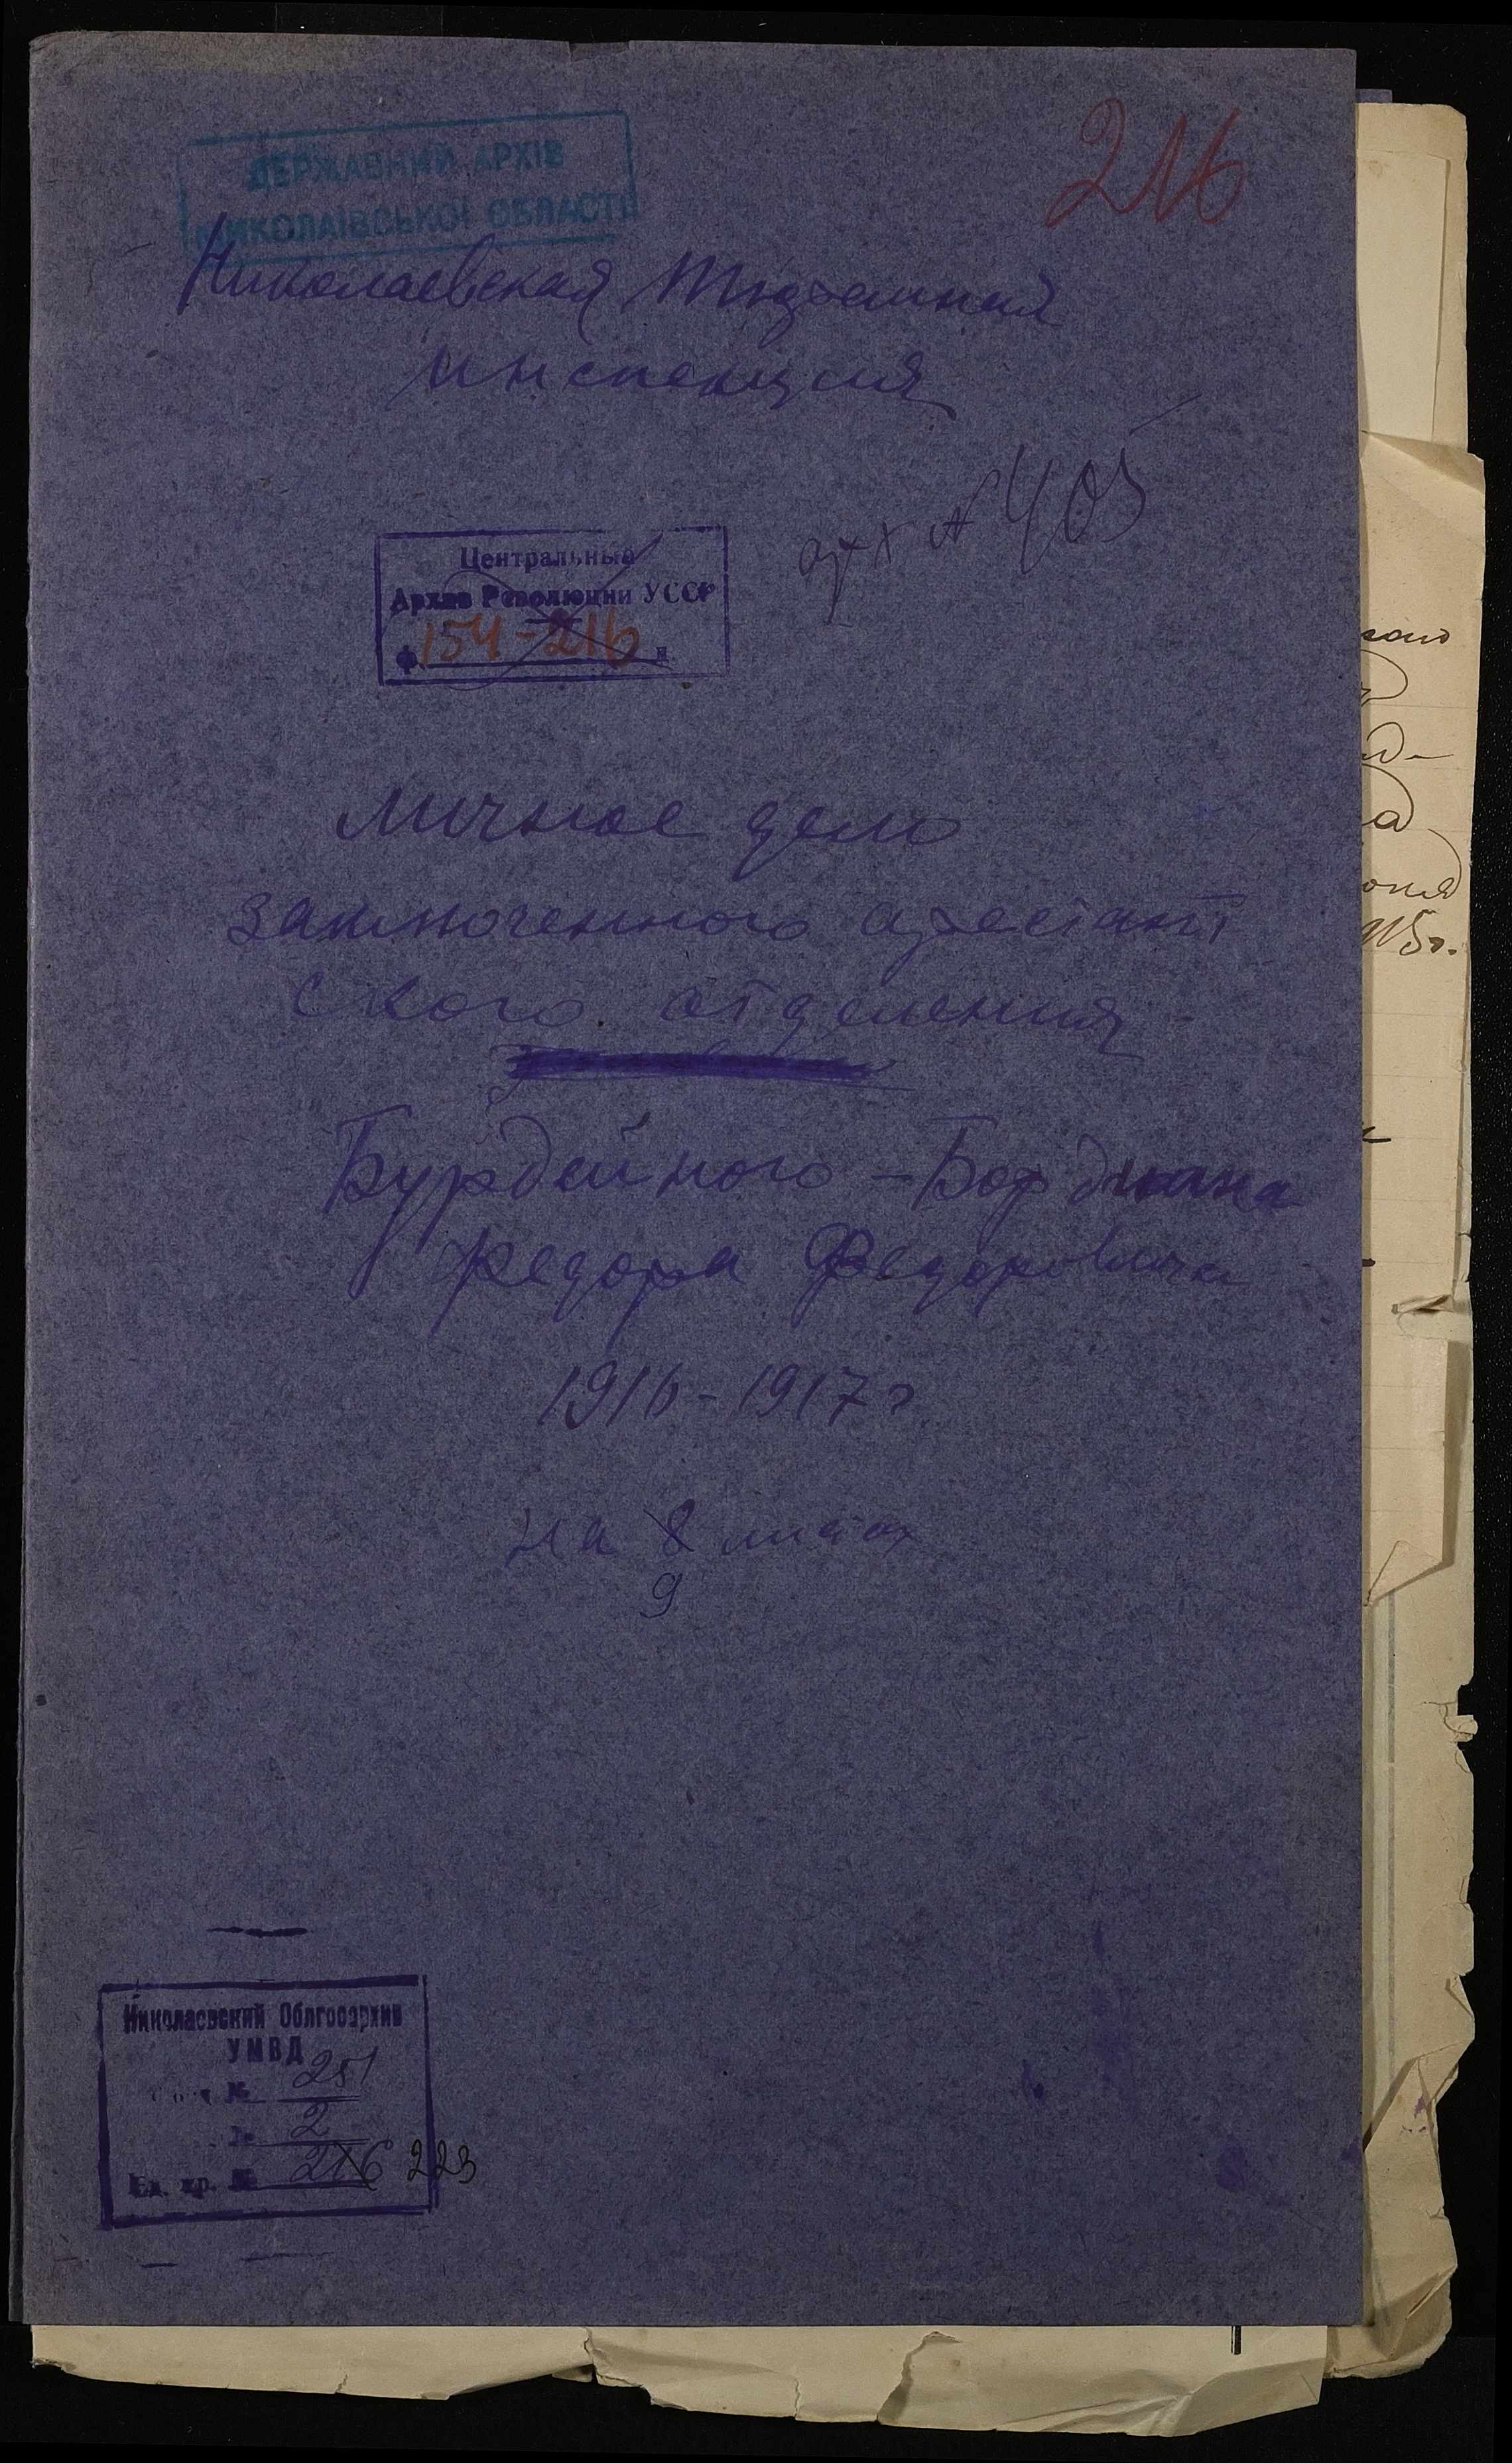 ДЕРЖАВНИЙ АРХІВ
МИКОЛАЇВСЬКОЇ ОБЛАСТІ
216
Николаевская Тюремная
инспекция
арх № 405
Центральный
Архив Революции УССР
Ф 154-216 н.
Личное дело
заключенного арестант
ского отделения
Бурдейного - Бордиана
Федора Федоровича
1916-1917 г.
на 8 листах
9
Николаевский Облгосархив
УМВД
№ 251
№ 2
Ед. хр. № 216 223
915г.